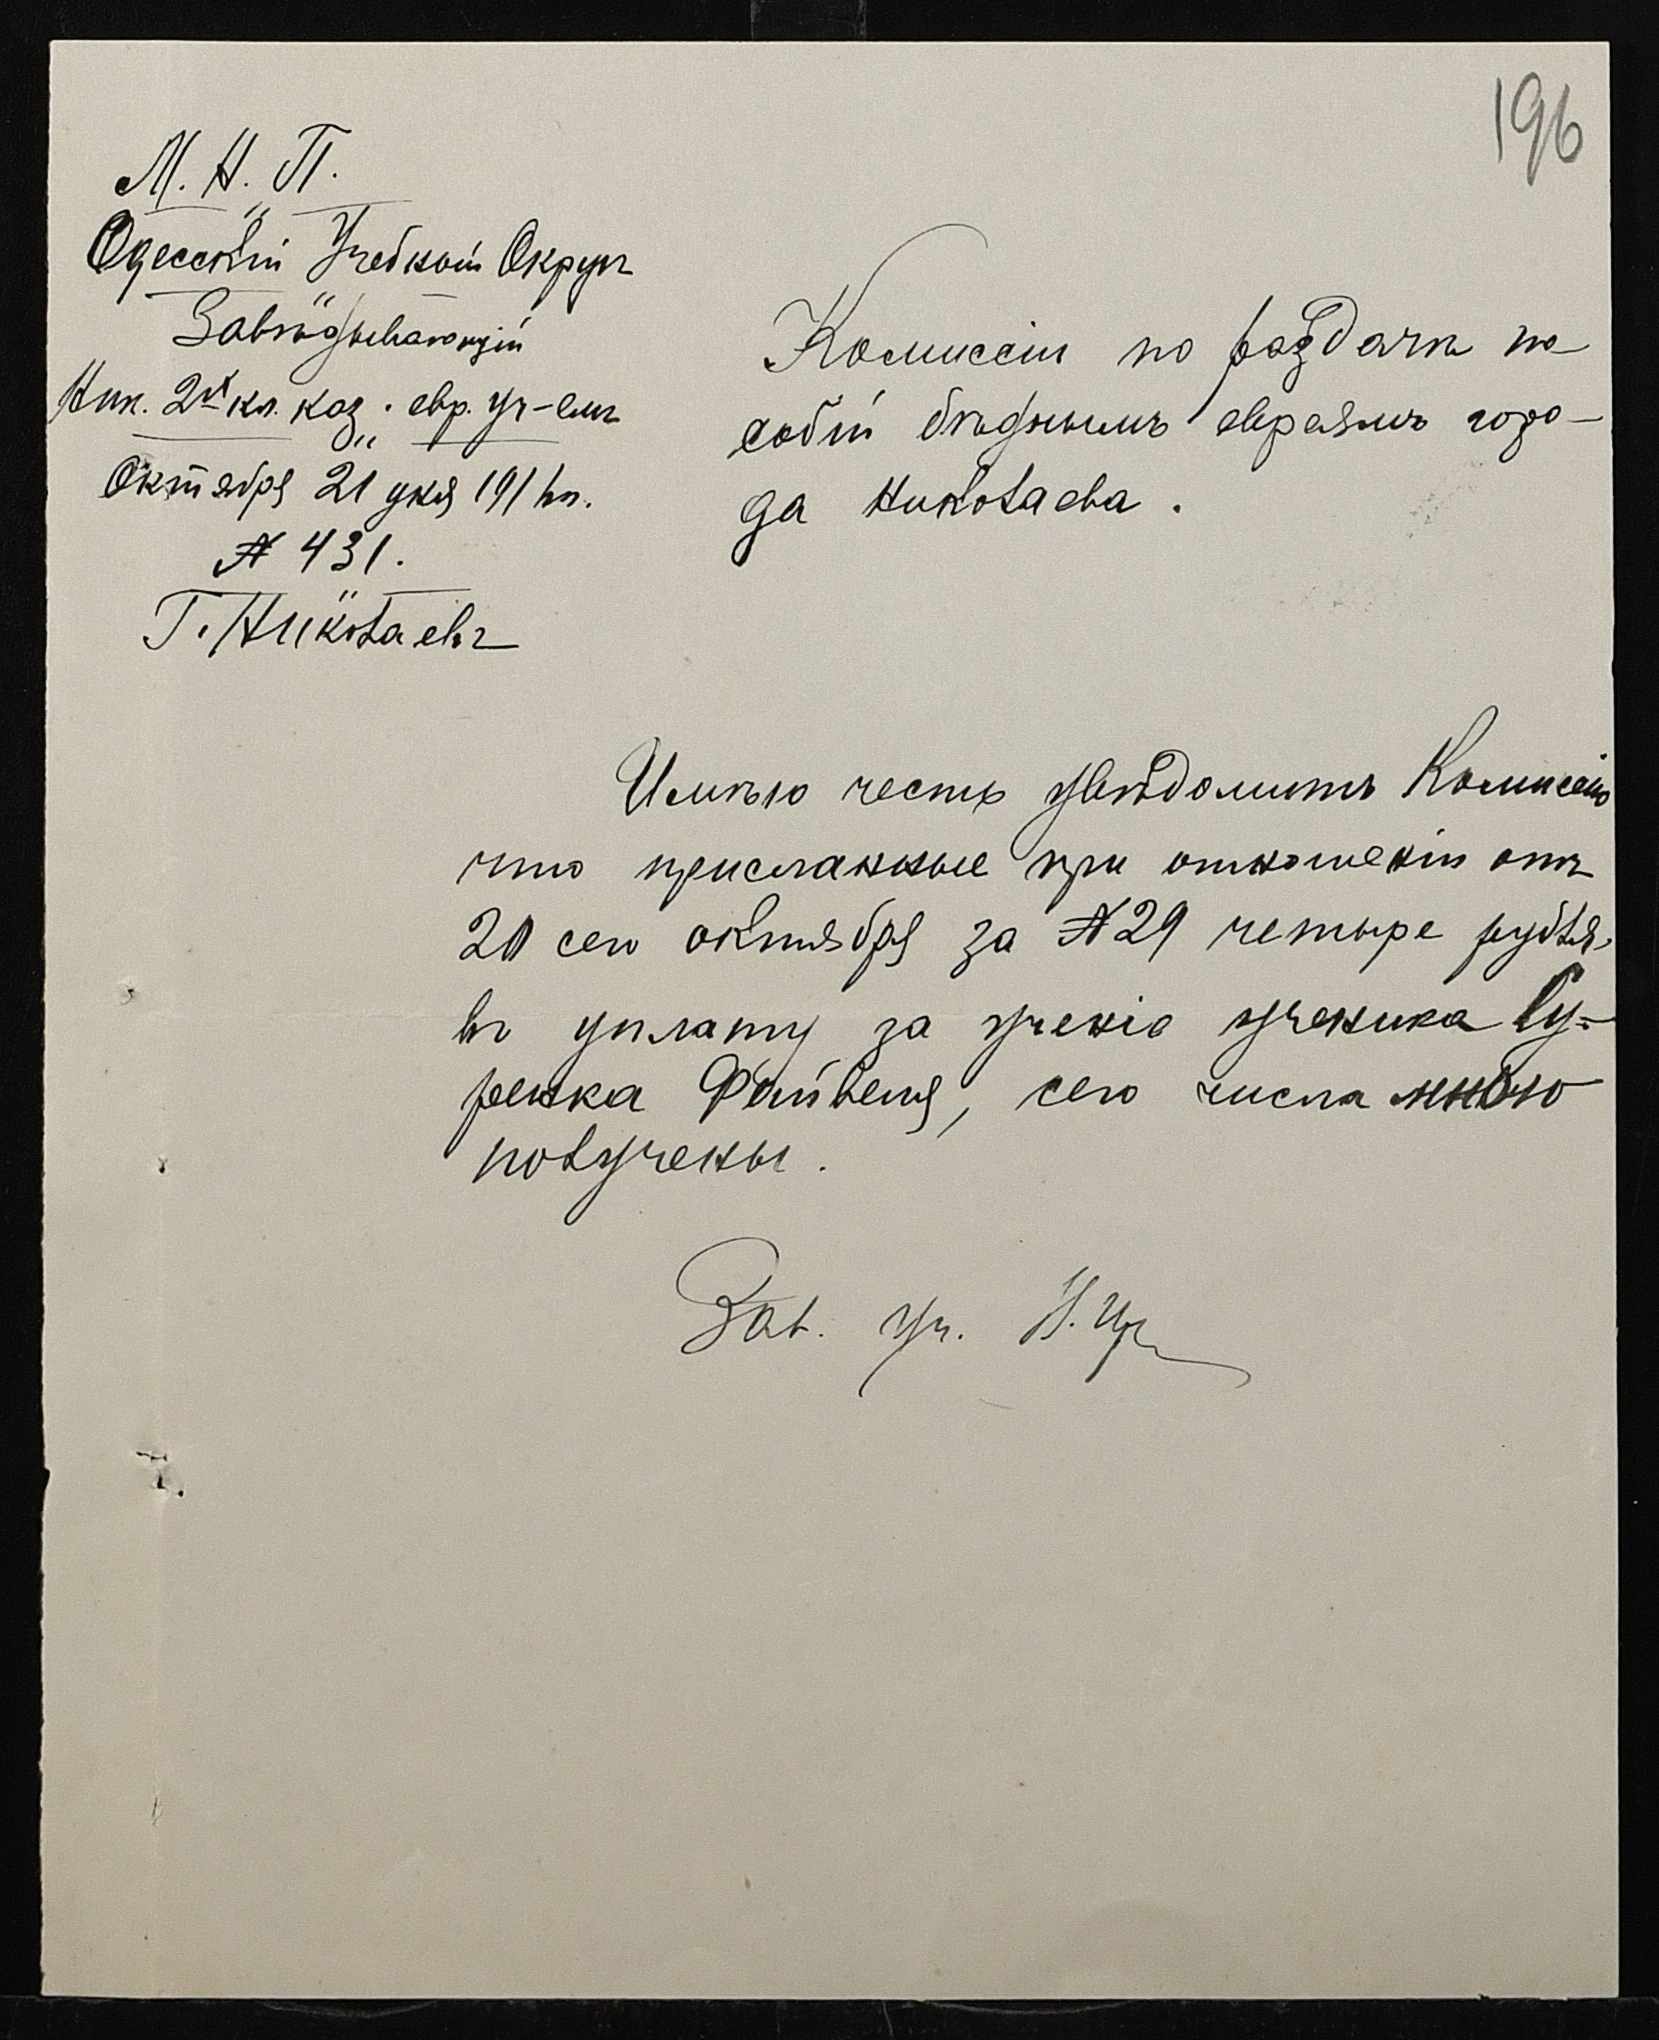 196
М. Н. П.
Одесскій Учебный Округъ
Завѣдывающій
Ник. 2хъ кл. каз. евр. уч-емъ
Октября 21 дня 191 г.
№ 431.
Г. Николаевъ
Комиссіи по раздачѣ по-
собій бѣднымъ евреямъ горо-
да Николаева.
Имѣю честь увѣдомить Комиссію
что присланные при отношеніи отъ
20 сего октября за № 29 четыре рубля
въ уплату за ученіе ученика Су-
ренка Файвеля, сего числа мною
получены.
Зав. уч.